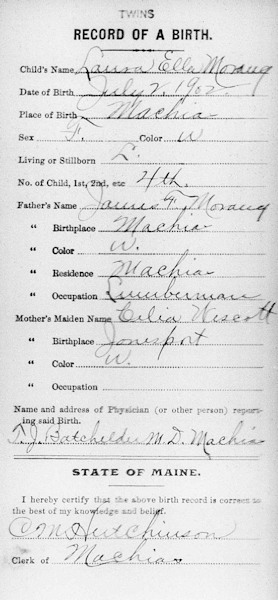 TWINS
RECORD OF A BIRTH.
Child's Name Laura Ella Morang
Date of Birth July 2, 1902
Place of Birth Machias
Sex F. Color W
Living or Stillborn L.
No. of Child, 1st, 2nd, etc 4th.
Father's Name James F. Morang
" Birthplace Machias
" Color W.
" Residence Machias
" Occupation Lumberman
Mother's Maiden Name Celia Wescott
" Birthplace Jonesport
" Color W.
" Occupation
Name and address of Physician (or other person) report-
ing said Birth.
T. J. Batchelder M. D. Machias
STATE OF MAINE.
I hereby certify that the above birth record is correct to
the best of my knowledge and belief.
C M Hutchinson
Clerk of Machias